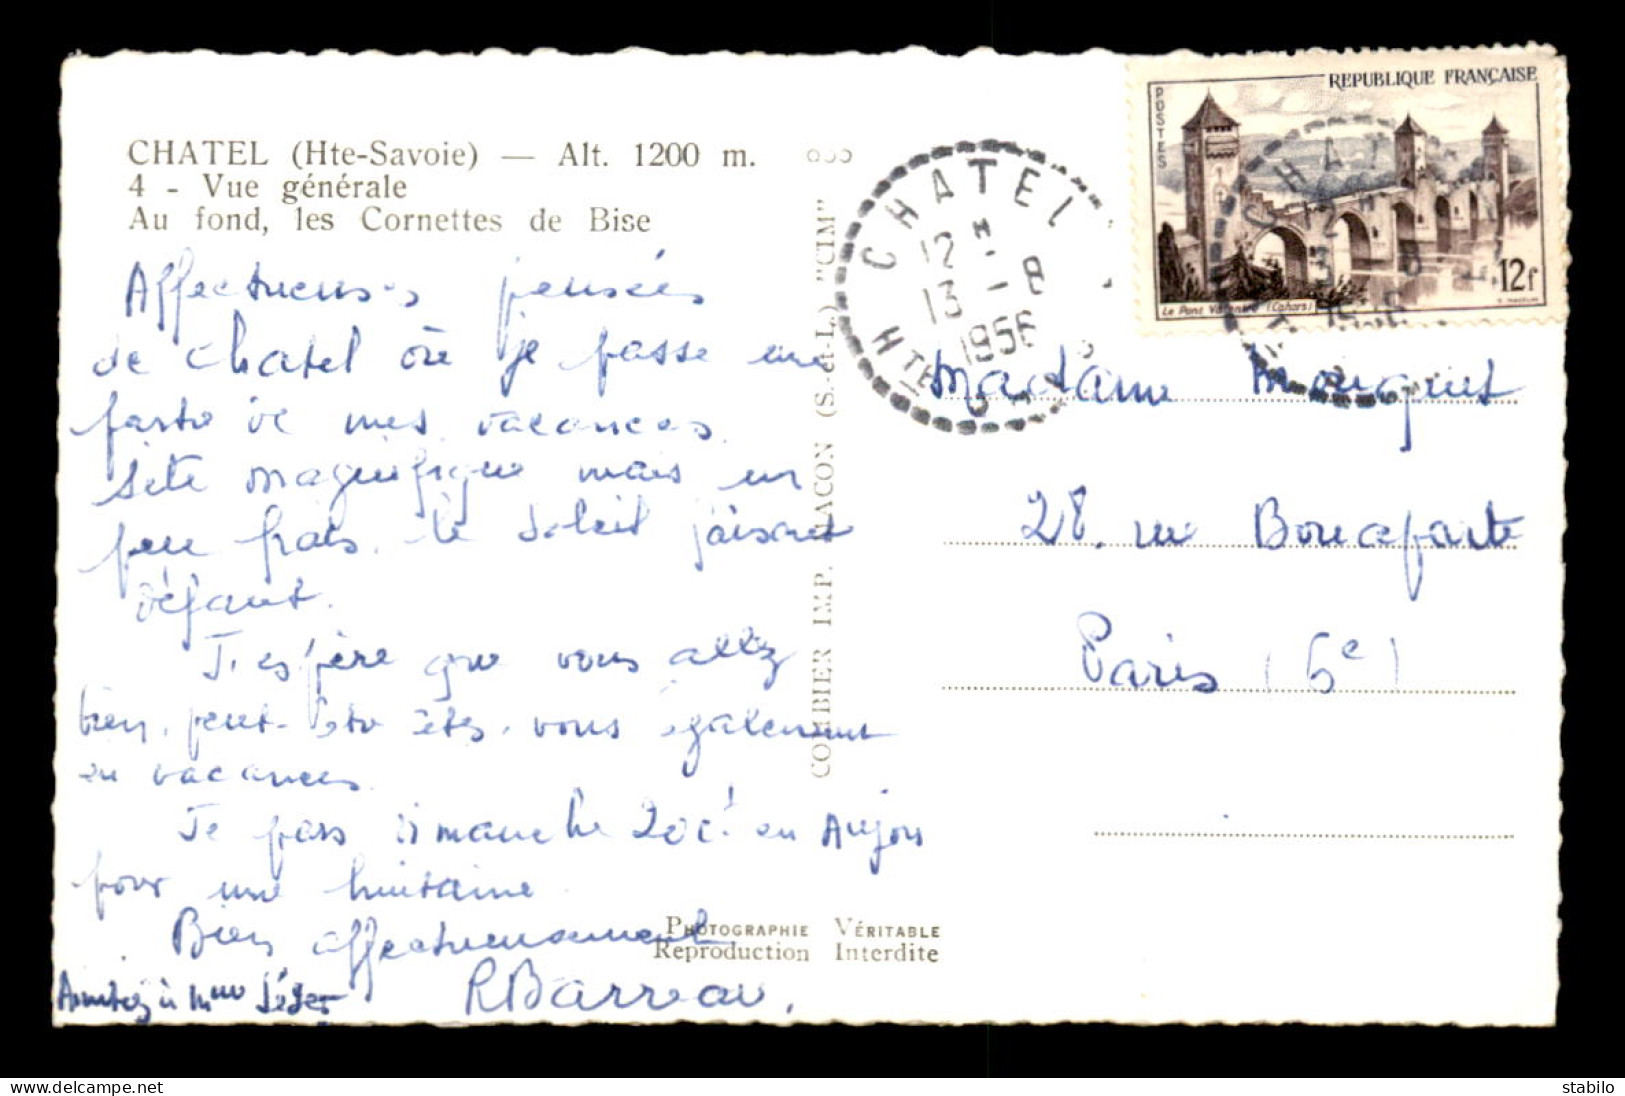 CHATEL (Hte-Savoie) — Alt. 1200 m.
4 - Vue générale
Au fond, les Cornettes de Bise
Affectueuses pensées
de Chatel où je passe une
partie de mes vacances.
Site magnifique mais un
peu frais, le soleil faisant
défaut.
J'espère que vous allez
bien, peut-être êtes-vous également
en vacances.
Je pars dimanche 20 en Anjou
pour une huitaine.
Bien affectueusement
RBarreau.
Amitiés à Mme
COMBIER IMP. MACON (S.-et-L.) "CIM"
PHOTOGRAPHIE VÉRITABLE
Reproduction Interdite
CHATEL
12 H
13 - 8
1956
HTE
POSTES
REPUBLIQUE FRANÇAISE
12f
Le Pont Valentré (Cahors)
CHAT
Madame Mouquet
28. rue Bonaparte
Paris (6e)
www.delcampe.net
stabilo